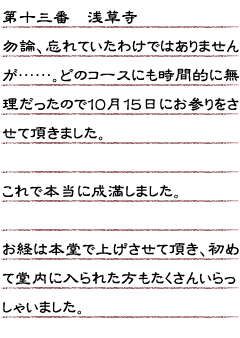 第十三番　浅草寺
勿論、忘れていたわけではありません
が……。どのコースにも時間的に無
理だったので10月15日にお参りをさ
せて頂きました。
これで本当に成満しました。
お経は本堂で上げさせて頂き、初め
て堂内に入られた方もたくさんいらっ
しゃいました。